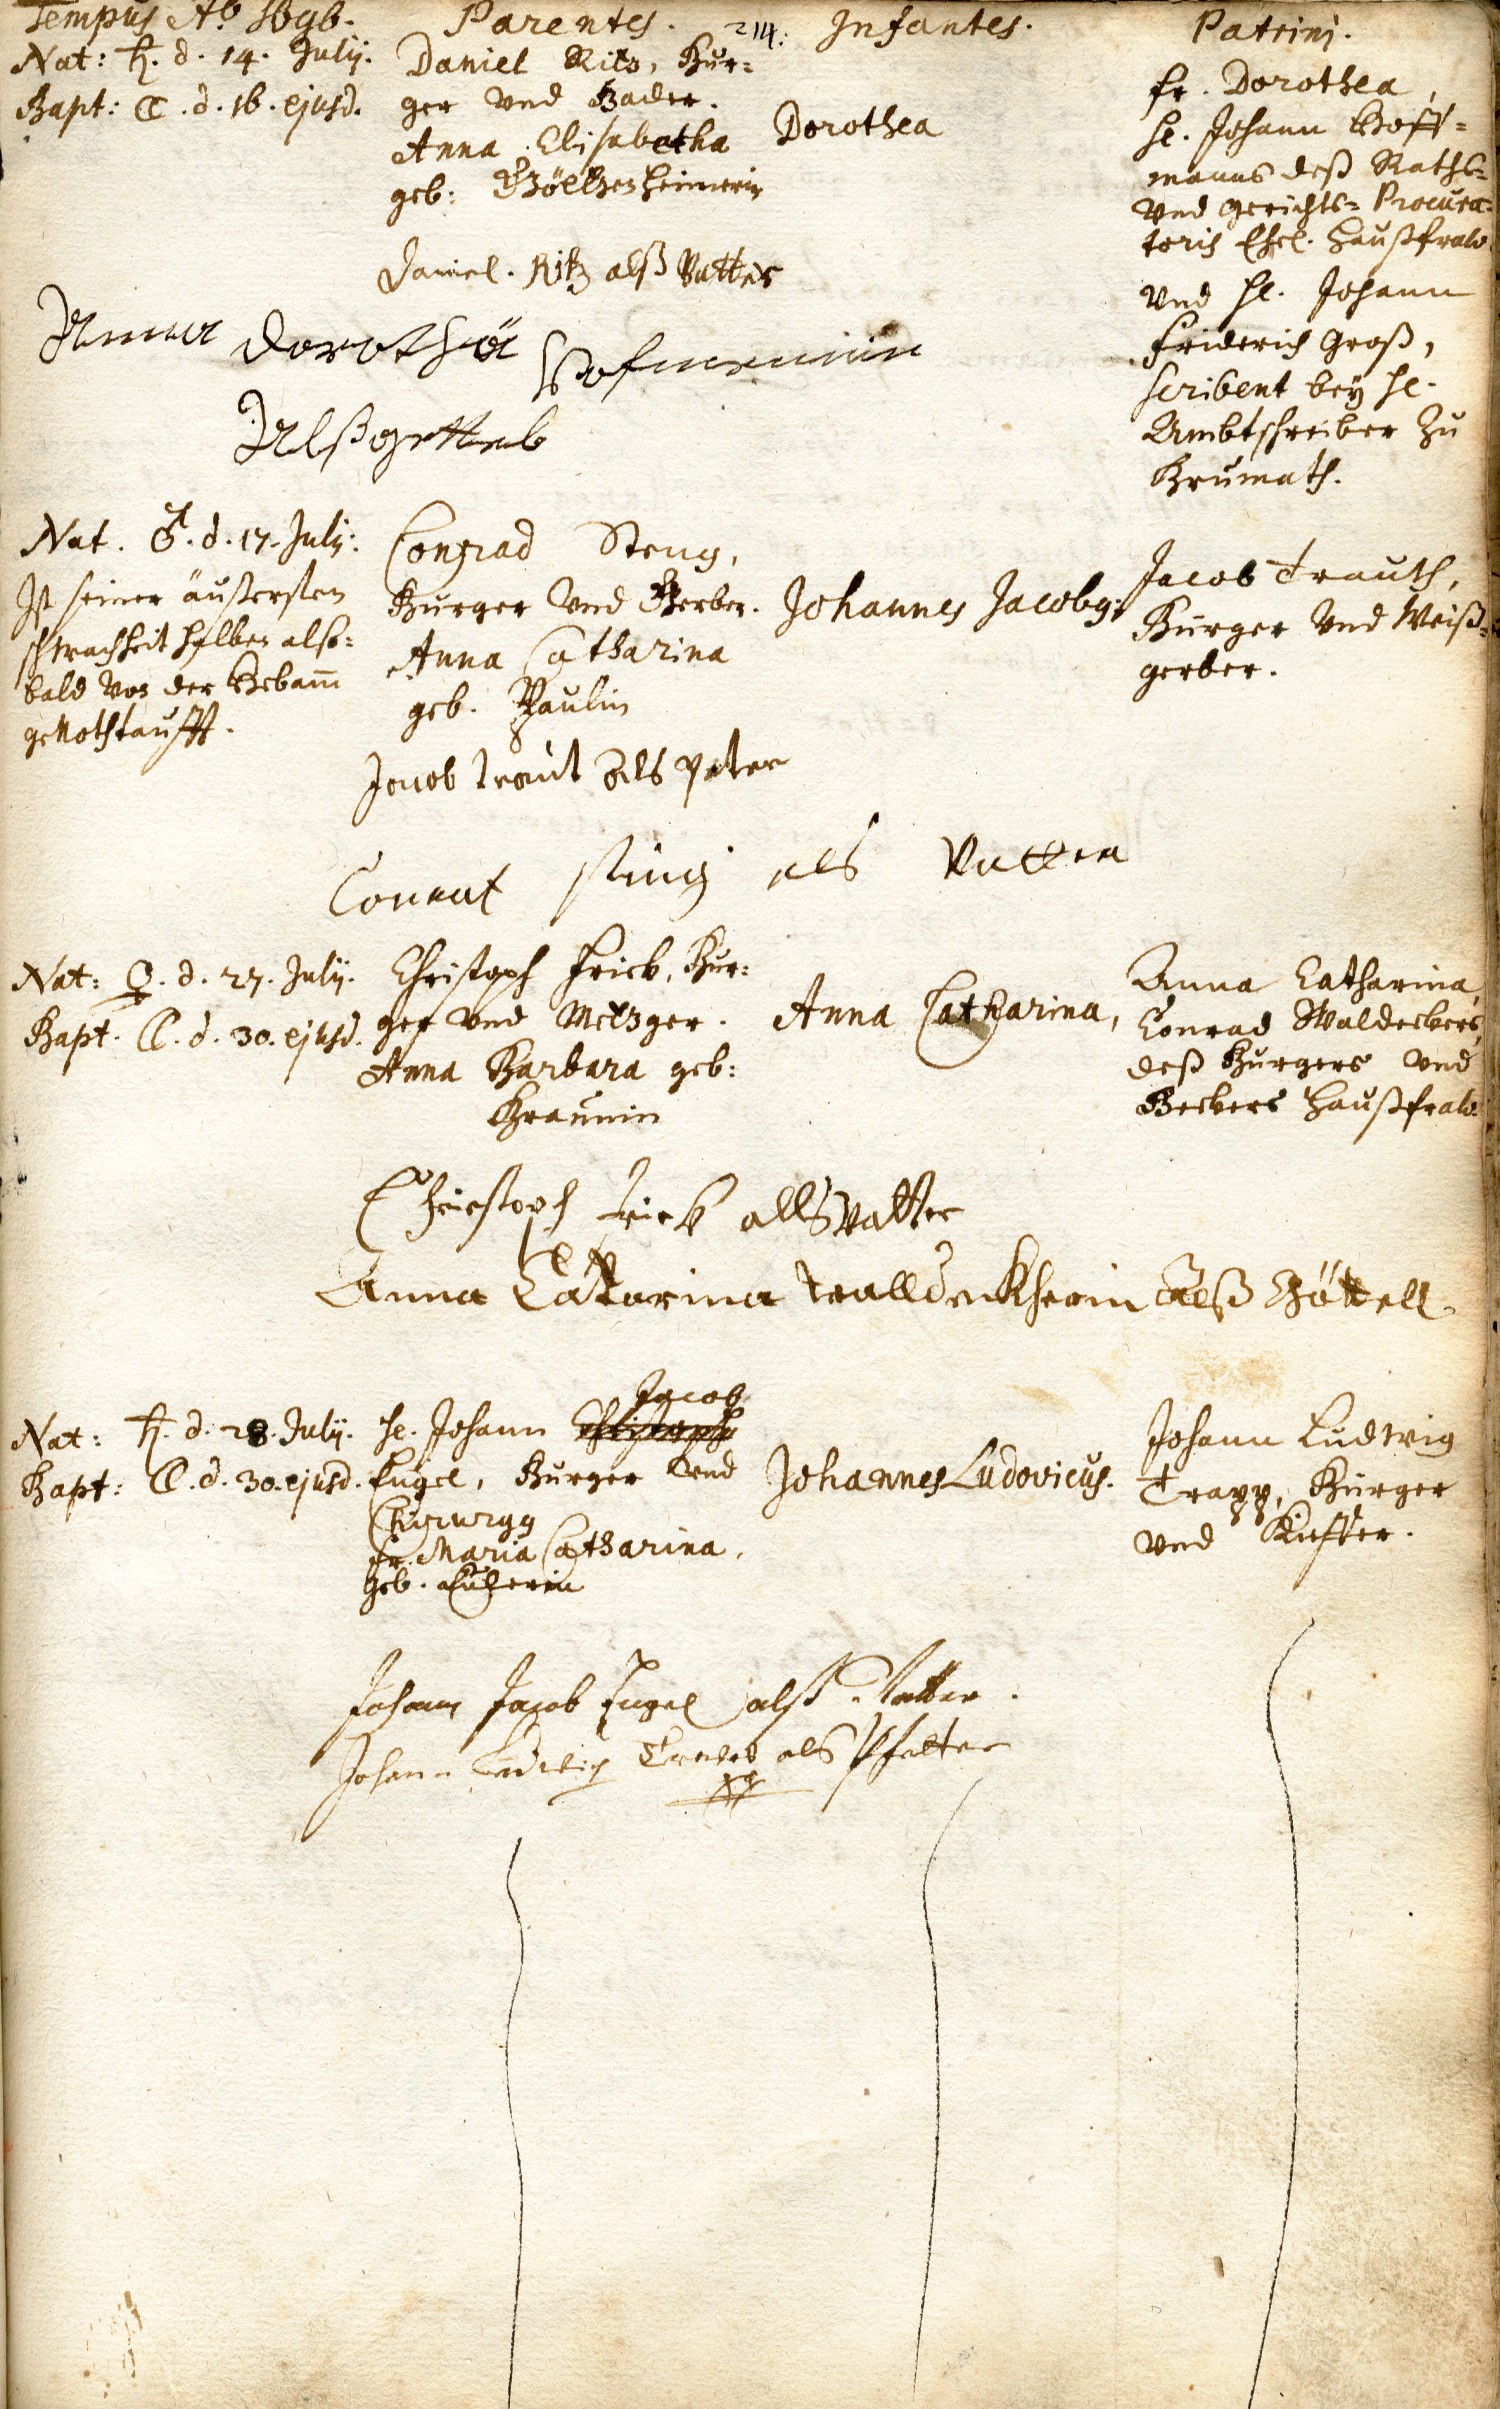 Tempus Aō 1696.
Parentes.
214.
Infantes.
Patrini.
Nat: ♄. d. 14. Julij.
Bapt: ☾. d. 16. ejusd.
Daniel Ritz, Bur-
ger vnd Bader.
Anna Elisabetha
geb:
Dorothea
Fr. Dorothea,
H. Johann Hoff-
manns deß Raths-
vnd gerichts- Procura-
toris Ehel. Haußfraw
vnd H. Johann
Friderich Groß,
scribent bey H.
Ambtschreiber zu
Brumath.
Daniel. Ritz alß Vatter
Anna Dorothea Hofmennin
Alß gettel
Nat. ♂. d. 17. Julij.
Ist seiner äußersten
schwachheit halber alß-
bald von der Hebam̄
genothtaufft.
Conrad Steng,
Burger vnd Gerber.
Anna Catharina
geb. Paulin
Johannes Jacobg:
Jacob Trauth,
Burger vnd Weiß-
gerber.
Jacob traut als peter
Conrat steng als Vatter
Nat: ♀. d. 27. Julij.
Bapt. ☾. d. 30. ejusd.
Christoph Frick, Bur-
ger vnd Metzger.
Anna Barbara geb:
Braunin
Anna Catharina,
Anna Catharina,
Conrad Waldeckers,
deß Burgers vnd
Beckers Haußfraw.
Christoph Frick allß Vatter
Anna Catarina walldeckherin alß Göttell
Nat: ♄. d. 28. Julij.
Bapt: ☾. d. 30. ejusd.
Jacob
H. Johann Christoph
Engel, Burger vnd
Chirurgg
Fr. Maria Catharina,
geb.
Johannes Ludovicus.
Johann Ludwig
Trapp, Burger
vnd Kieffer.
Johann Jacob Engel alß Vatter.
Johann Ludwig als Pfetter